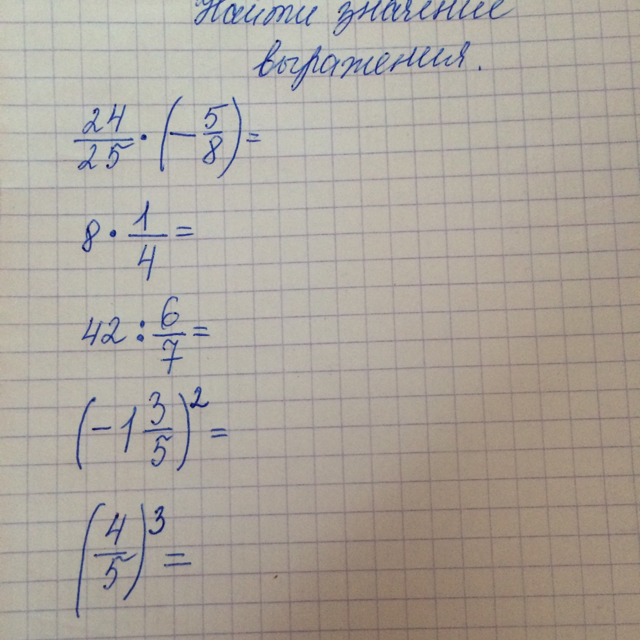 Найти значение
выражения.
24/25 · (-5/8) =
8 · 1/4 =
42 : 6/7 =
(-1 3/5)² =
(4/5)³ =